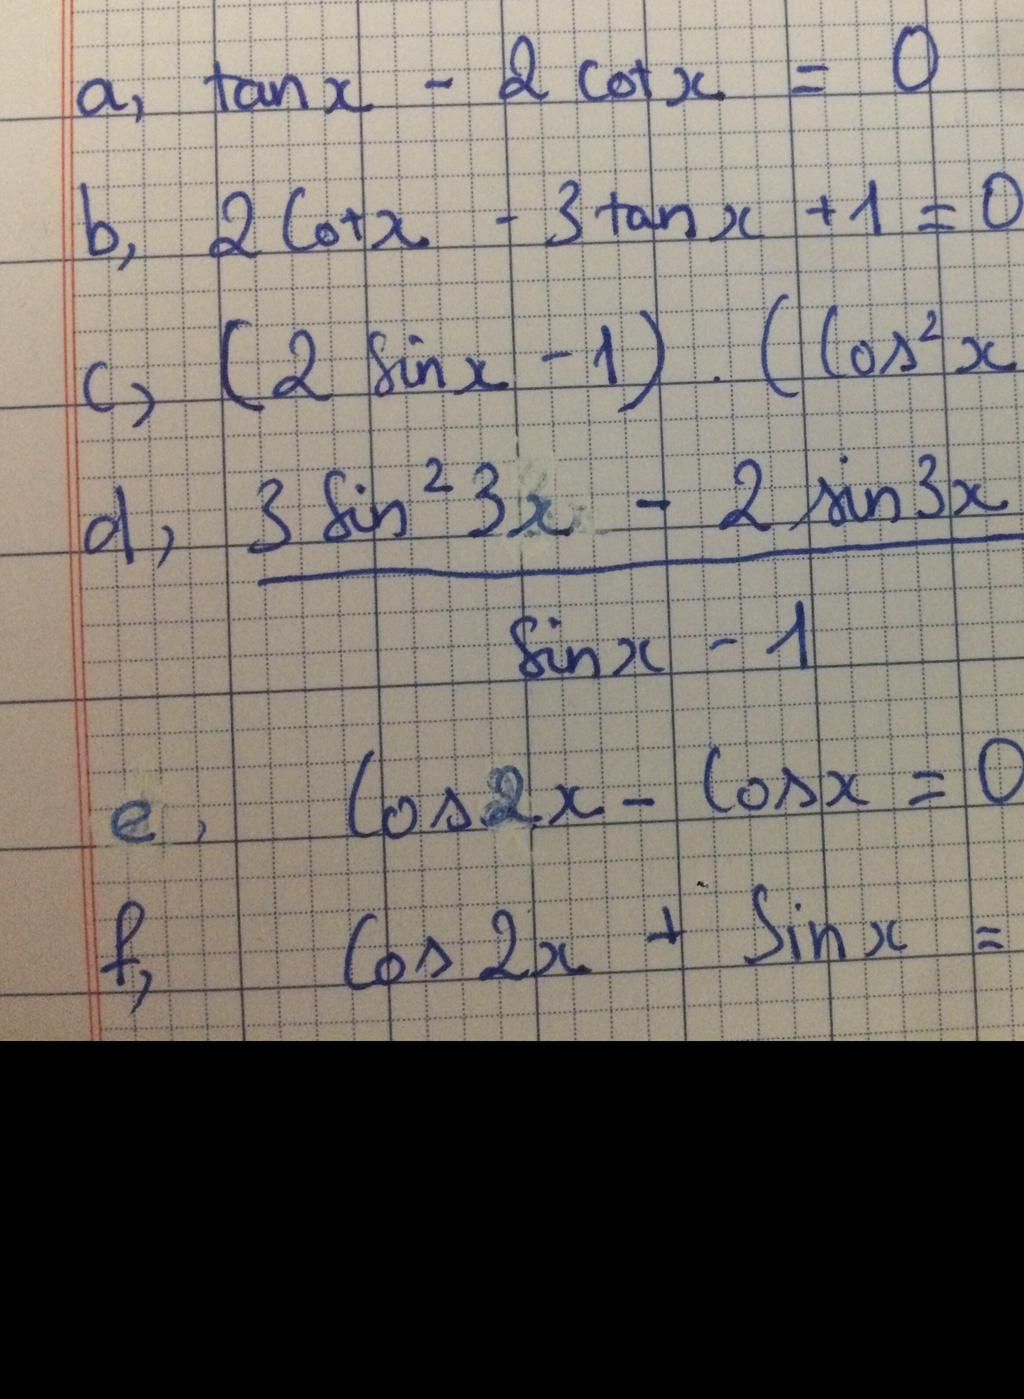 a, tanx - 2 cotx = 0
b, 2 Cotx - 3 tanx + 1 = 0
c, (2 sinx - 1) . (Cos²x
d, 3 sin²3x - 2 sin3x
sinx - 1
e, Cos2x - Cosx = 0
f, Cos2x + Sinx =